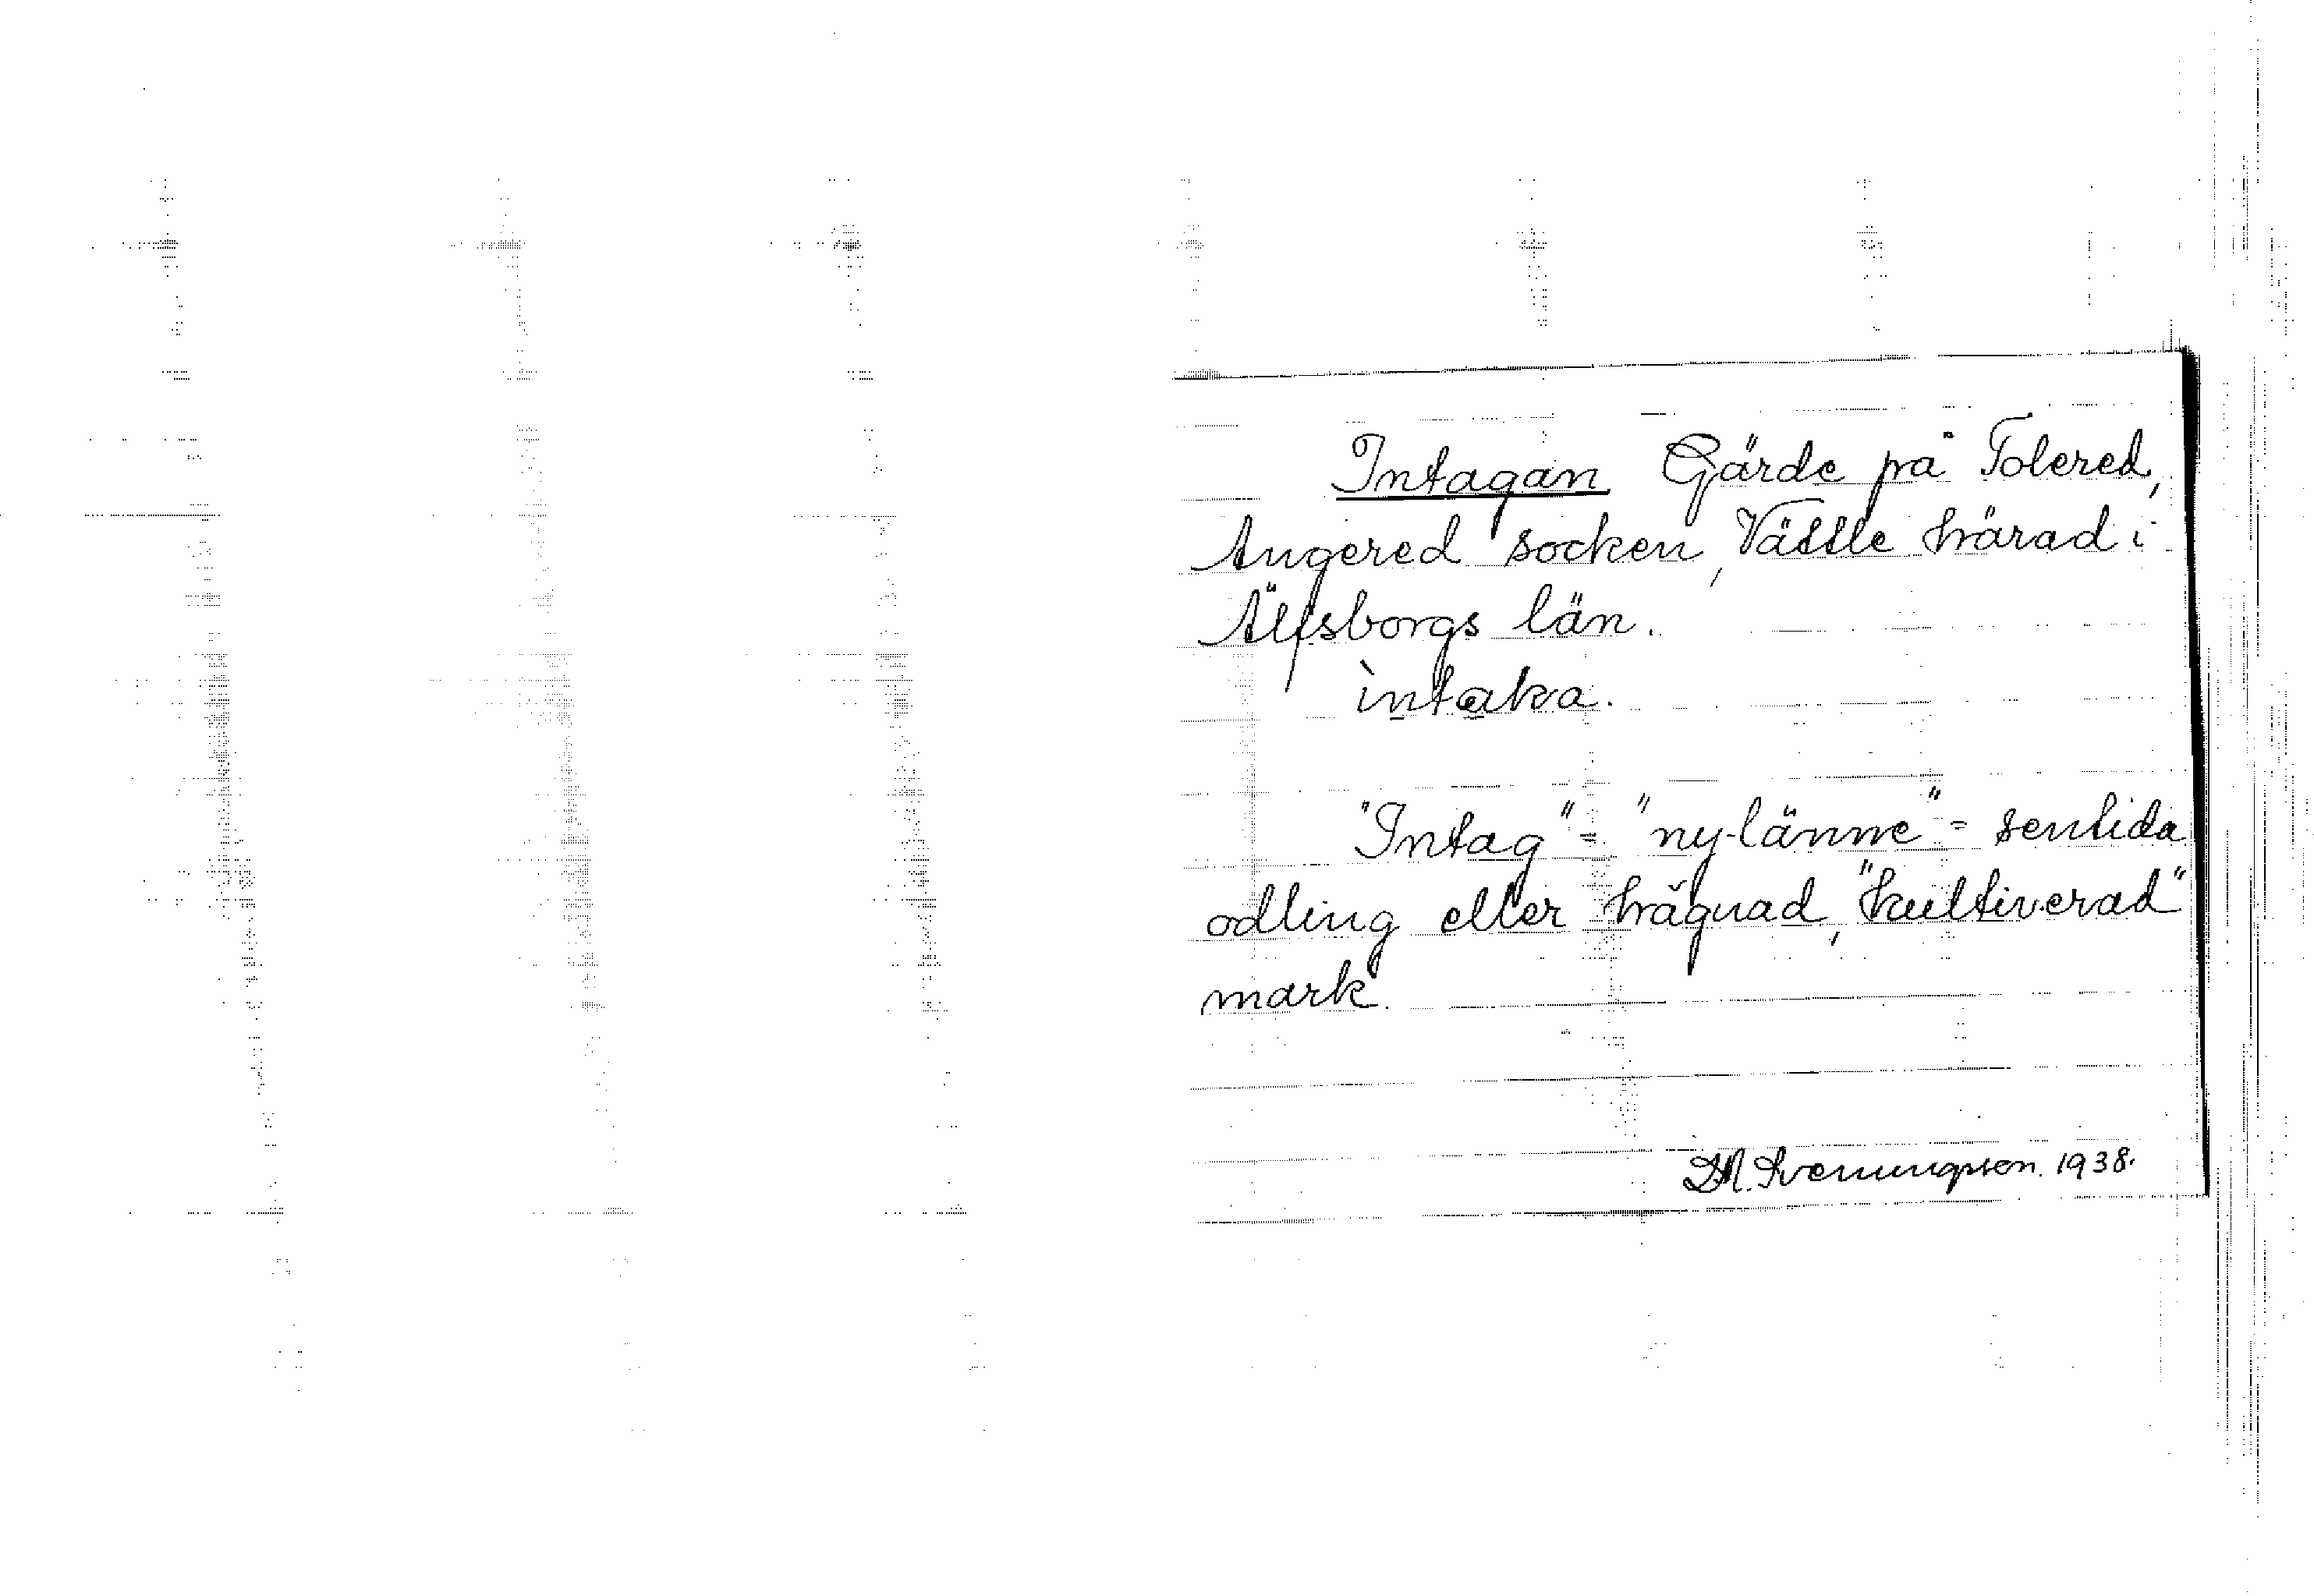 Intagan Gärde på Tolered,
Angered socken, Vättle härad i
Älfsborgs län.
ìntaka.
"Intag" = "ny-länne" = sentida
odling eller hägnad, "kultiverad"
mark.
Svenungsson. 1938.